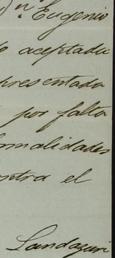 Dn Eugenio
aceptada
presentado
por falta
formalidades
contra el
Landazuri